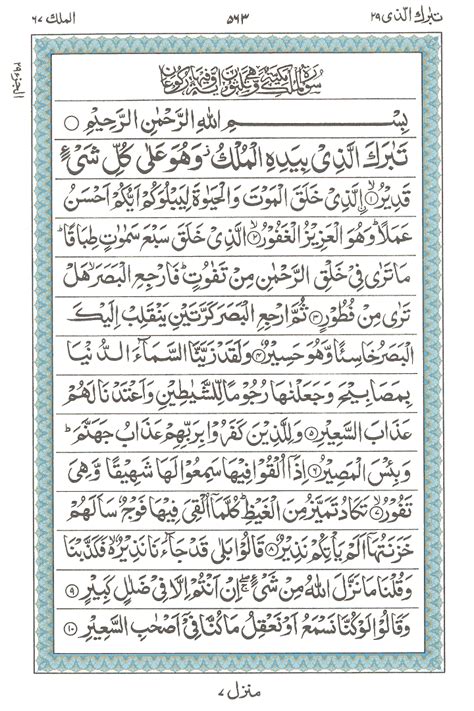 تبرك الذی ٢٩
٥٦٣
الملك ٦٧
سورة الملك مكية وهي ثلثون اية وفيها ركوعان
بِسْمِ اللهِ الرَّحْمٰنِ الرَّحِيْمِ
تَبٰرَكَ الَّذِىْ بِيَدِهِ الْمُلْكُ ؗ وَهُوَ عَلٰى كُلِّ شَىْءٍ
قَدِيْرُ ۙ﴿١﴾ ۨالَّذِىْ خَلَقَ الْمَوْتَ وَالْحَيٰوةَ لِيَبْلُوَكُمْ اَيُّكُمْ اَحْسَنُ
عَمَلًا ؕ وَهُوَ الْعَزِيْزُ الْغَفُوْرُ ۙ﴿٢﴾ الَّذِىْ خَلَقَ سَبْعَ سَمٰوٰتٍ طِبَاقًا ؕ
مَا تَرٰى فِىْ خَلْقِ الرَّحْمٰنِ مِنْ تَفٰوُتٍ ؕ فَارْجِعِ الْبَصَرَ ۙ هَلْ
تَرٰى مِنْ فُطُوْرٍ ﴿٣﴾ ثُمَّ ارْجِعِ الْبَصَرَ كَرَّتَيْنِ يَنْقَلِبْ اِلَيْكَ
الْبَصَرُ خَاسِئًا وَّهُوَ حَسِيْرٌ ﴿٤﴾ وَلَقَدْ زَيَّنَّا السَّمَآءَ الدُّنْيَا
بِمَصَابِيْحَ وَجَعَلْنٰهَا رُجُوْمًا لِّلشَّيٰطِيْنِ وَاَعْتَدْنَا لَهُمْ
عَذَابَ السَّعِيْرِ ﴿٥﴾ وَلِلَّذِيْنَ كَفَرُوْا بِرَبِّهِمْ عَذَابُ جَهَنَّمَ ؕ
وَبِئْسَ الْمَصِيْرُ ﴿٦﴾ اِذَآ اُلْقُوْا فِيْهَا سَمِعُوْا لَهَا شَهِيْقًا وَّهِىَ
تَفُوْرُ ۙ﴿٧﴾ تَكَادُ تَمَيَّزُ مِنَ الْغَيْظِ ؕ كُلَّمَآ اُلْقِىَ فِيْهَا فَوْجٌ سَاَلَهُمْ
خَزَنَتُهَآ اَلَمْ يَاْتِكُمْ نَذِيْرٌ ﴿٨﴾ قَالُوْا بَلٰى قَدْ جَآءَنَا نَذِيْرٌ ۙ فَكَذَّبْنَا
وَقُلْنَا مَا نَزَّلَ اللهُ مِنْ شَىْءٍ ۚۖ اِنْ اَنْتُمْ اِلَّا فِىْ ضَلٰلٍ كَبِيْرٍ ﴿٩﴾
وَقَالُوْا لَوْ كُنَّا نَسْمَعُ اَوْ نَعْقِلُ مَا كُنَّا فِىْٓ اَصْحٰبِ السَّعِيْرِ ﴿١٠﴾
منزل ٧